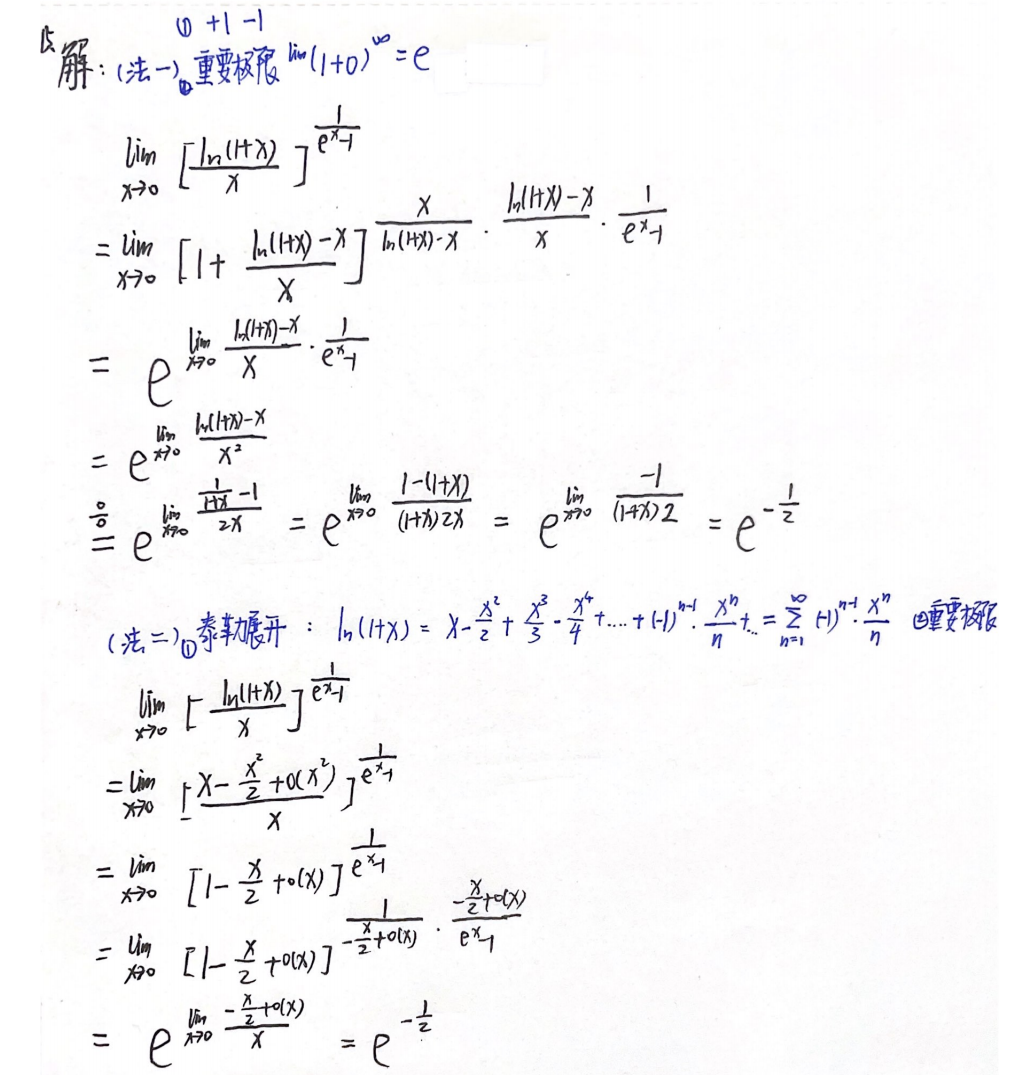 ① +1 -1
解：(法一)② 重要极限 lim(1+0)^∞ = e
lim_{x→0} [ln(1+x)/x]^{1/(e^x-1)}
= lim_{x→0} [1+ (ln(1+x)-x)/x]^{x/(ln(1+x)-x) · (ln(1+x)-x)/x · 1/(e^x-1)}
= e^{lim_{x→0} (ln(1+x)-x)/x · 1/(e^x-1)}
= e^{lim_{x→0} (ln(1+x)-x)/x²}
0/0 = e^{lim_{x→0} (1/(1+x) -1)/2x} = e^{lim_{x→0} (1-(1+x))/((1+x)2x)} = e^{lim_{x→0} -1/((1+x)2)} = e^{-1/2}
(法二)① 泰勒展开： ln(1+x) = x - x²/2 + x³/3 - x⁴/4 + .... + (-1)^{n-1}·x^n/n + .. = ∑_{n=1}^{∞} (-1)^{n-1}·x^n/n ②重要极限
lim_{x→0} [ln(1+x)/x]^{1/(e^x-1)}
= lim_{x→0} [(x - x²/2 + o(x²))/x]^{1/(e^x-1)}
= lim_{x→0} [1 - x/2 + o(x)]^{1/(e^x-1)}
= lim_{x→0} [1 - x/2 + o(x)]^{1/(-x/2+o(x)) · (-x/2+o(x))/(e^x-1)}
= e^{lim_{x→0} (-x/2+o(x))/x} = e^{-1/2}